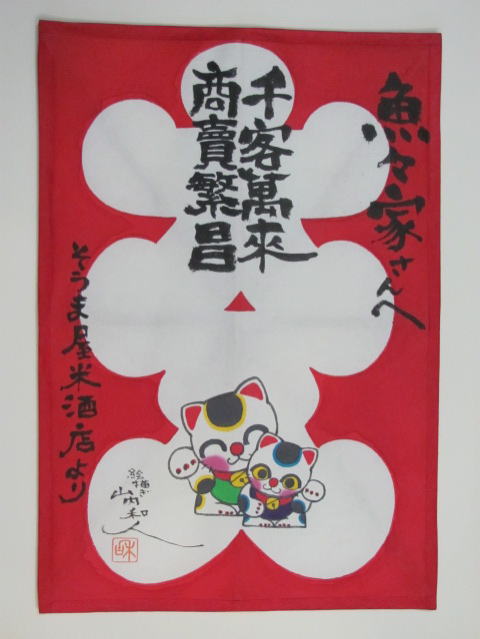 魚々家さんへ
千客萬來
商賣繁昌
そうま屋米酒店より
絵描き
山内和人